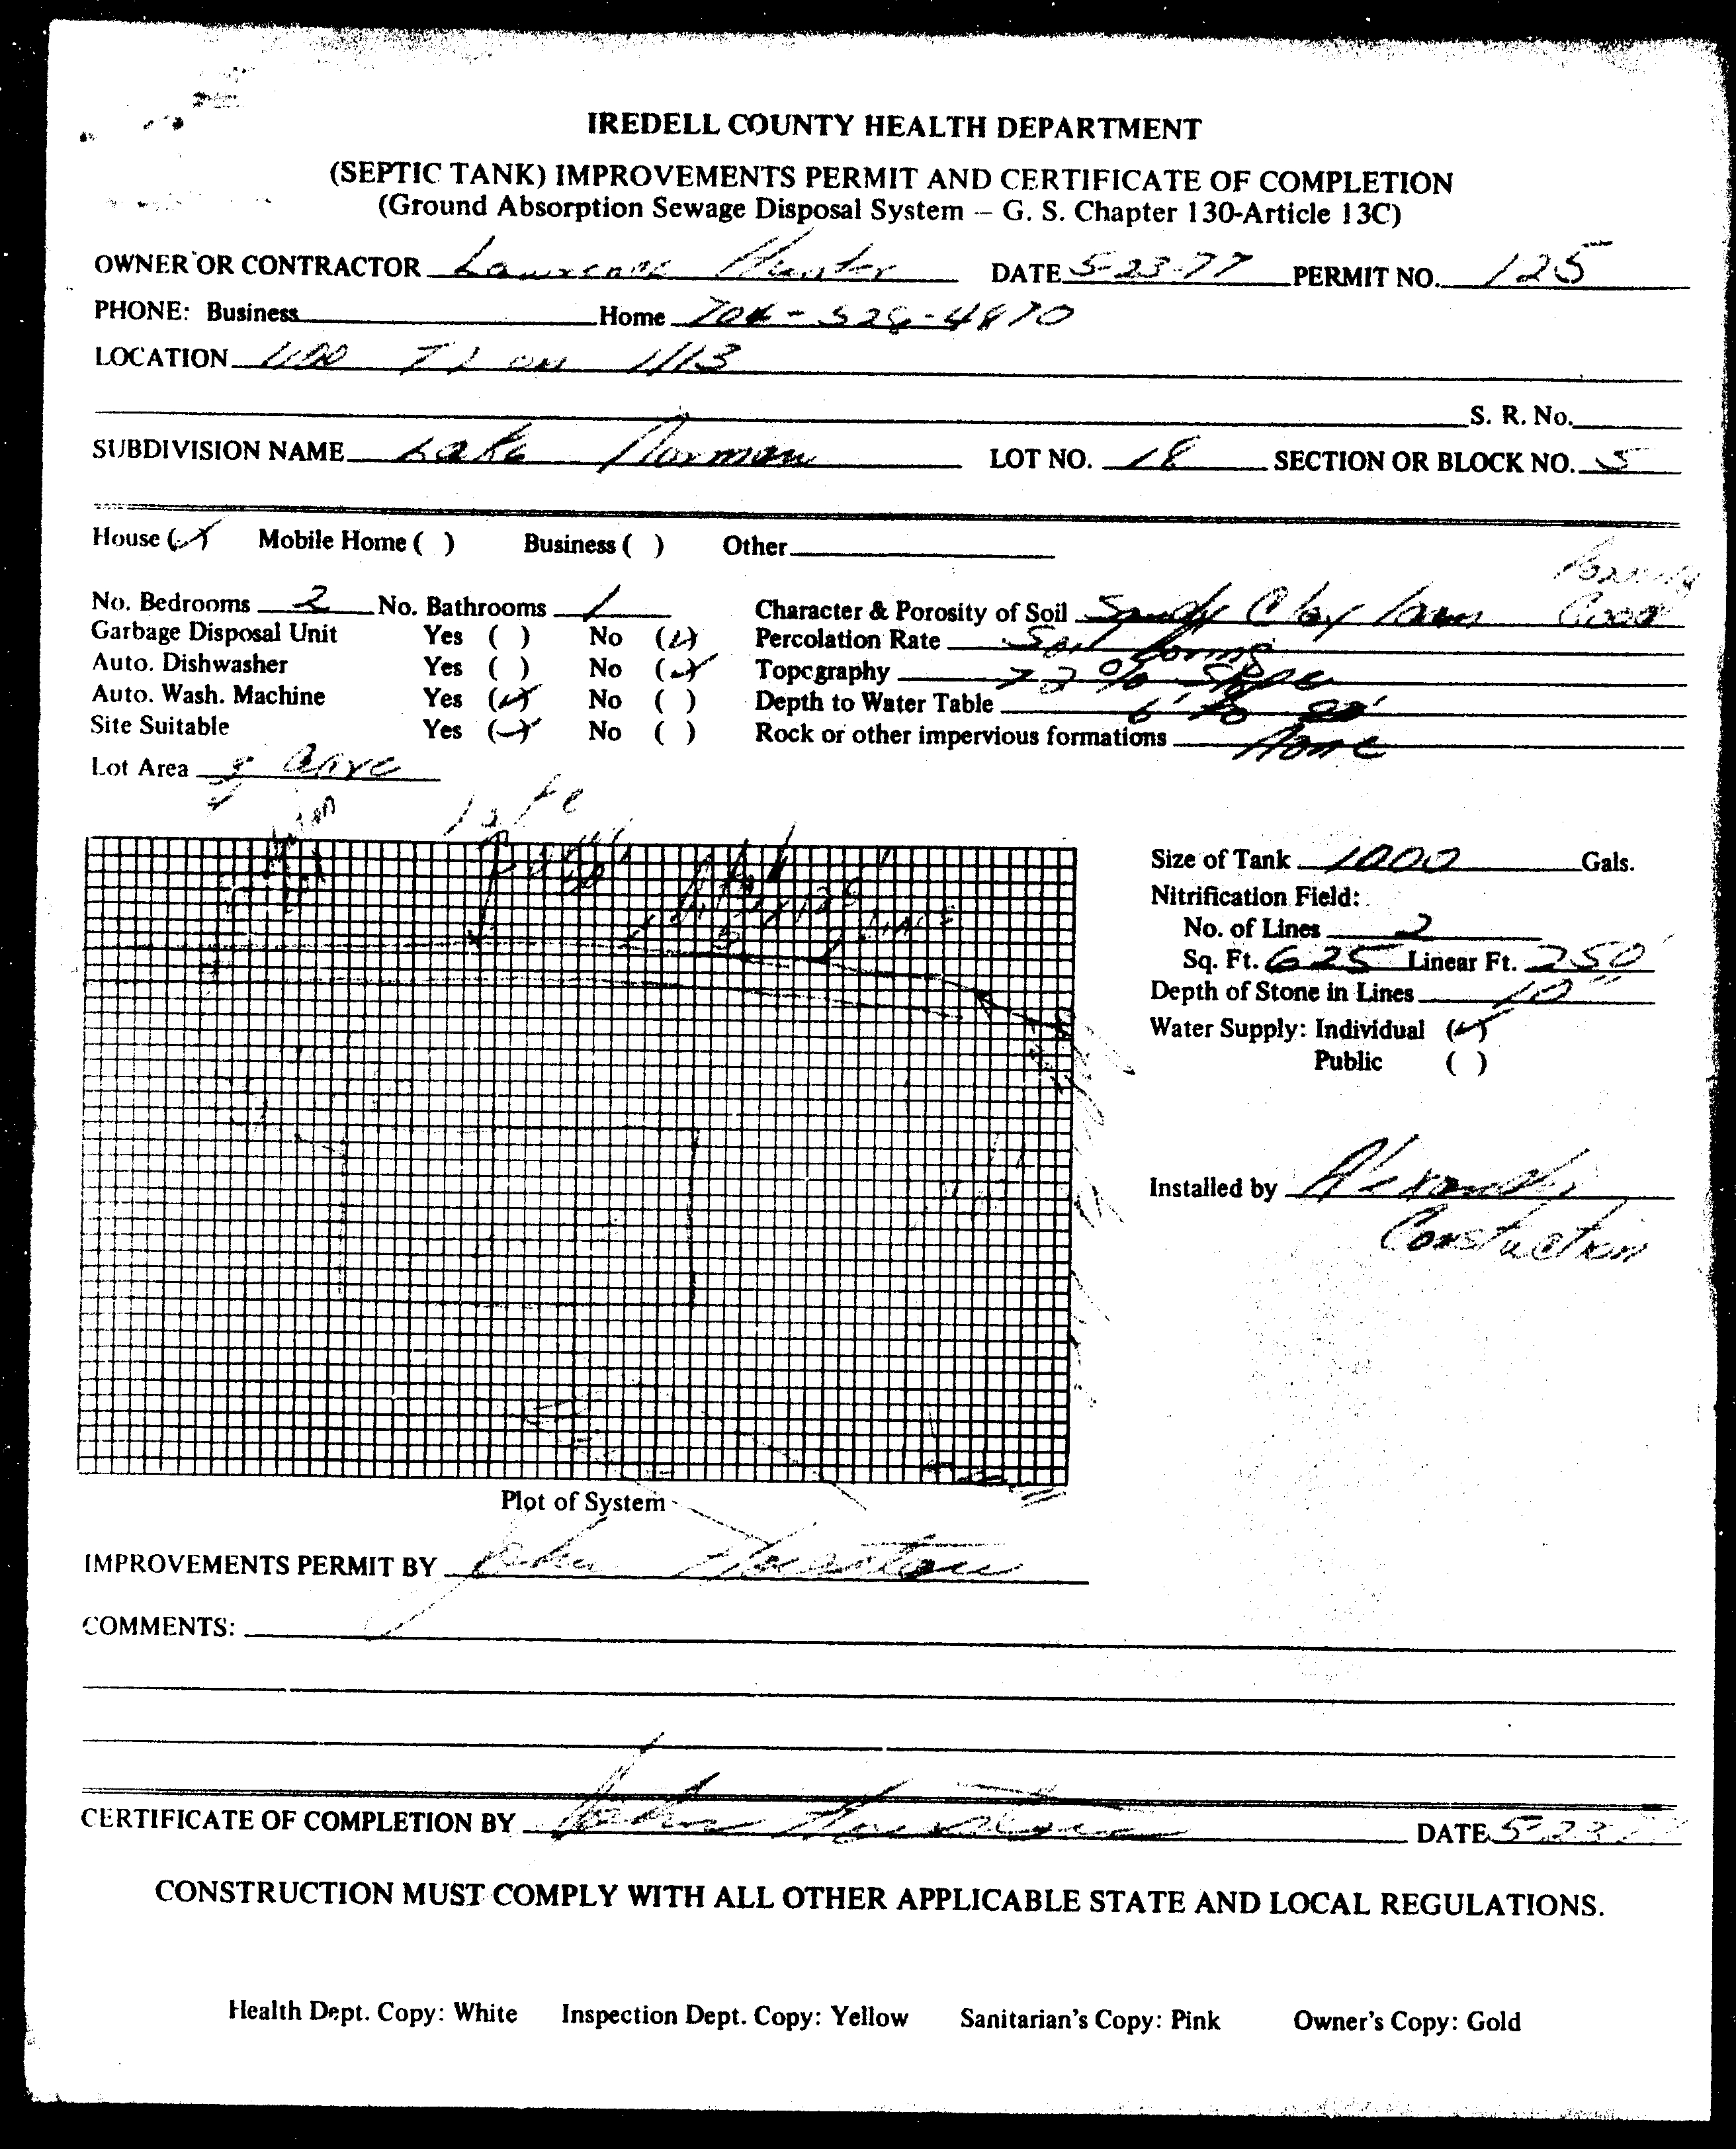 IREDELL COUNTY HEALTH DEPARTMENT
(SEPTIC TANK) IMPROVEMENTS PERMIT AND CERTIFICATE OF COMPLETION
(Ground Absorption Sewage Disposal System – G. S. Chapter 130-Article 13C)
OWNER OR CONTRACTOR Lawrence Hunter DATE 5-23-77 PERMIT NO. 125
PHONE: Business Home 704-528-4870
LOCATION on 1113
S. R. No.
SUBDIVISION NAME Lake Norman LOT NO. 18 SECTION OR BLOCK NO. 5
House (✓) Mobile Home ( ) Business ( ) Other
No. Bedrooms 2 No. Bathrooms 1 Character & Porosity of Soil Sandy Clay loam Good
Garbage Disposal Unit Yes ( ) No (✓) Percolation Rate Soil boring
Auto. Dishwasher Yes ( ) No (✓) Topography % Slope
Auto. Wash. Machine Yes (✓) No ( ) Depth to Water Table 6' to 20'
Site Suitable Yes (✓) No ( ) Rock or other impervious formations None
Lot Area acre
Lake
Size of Tank 1000 Gals.
Nitrification Field:
No. of Lines 2
Sq. Ft. 625 Linear Ft. 250'
Depth of Stone in Lines 10"
Water Supply: Individual (✓)
Public ( )
Installed by Alexander
Constuction
Plot of System
IMPROVEMENTS PERMIT BY John
COMMENTS:
CERTIFICATE OF COMPLETION BY John DATE 5-23
CONSTRUCTION MUST COMPLY WITH ALL OTHER APPLICABLE STATE AND LOCAL REGULATIONS.
Health Dept. Copy: White Inspection Dept. Copy: Yellow Sanitarian's Copy: Pink Owner's Copy: Gold